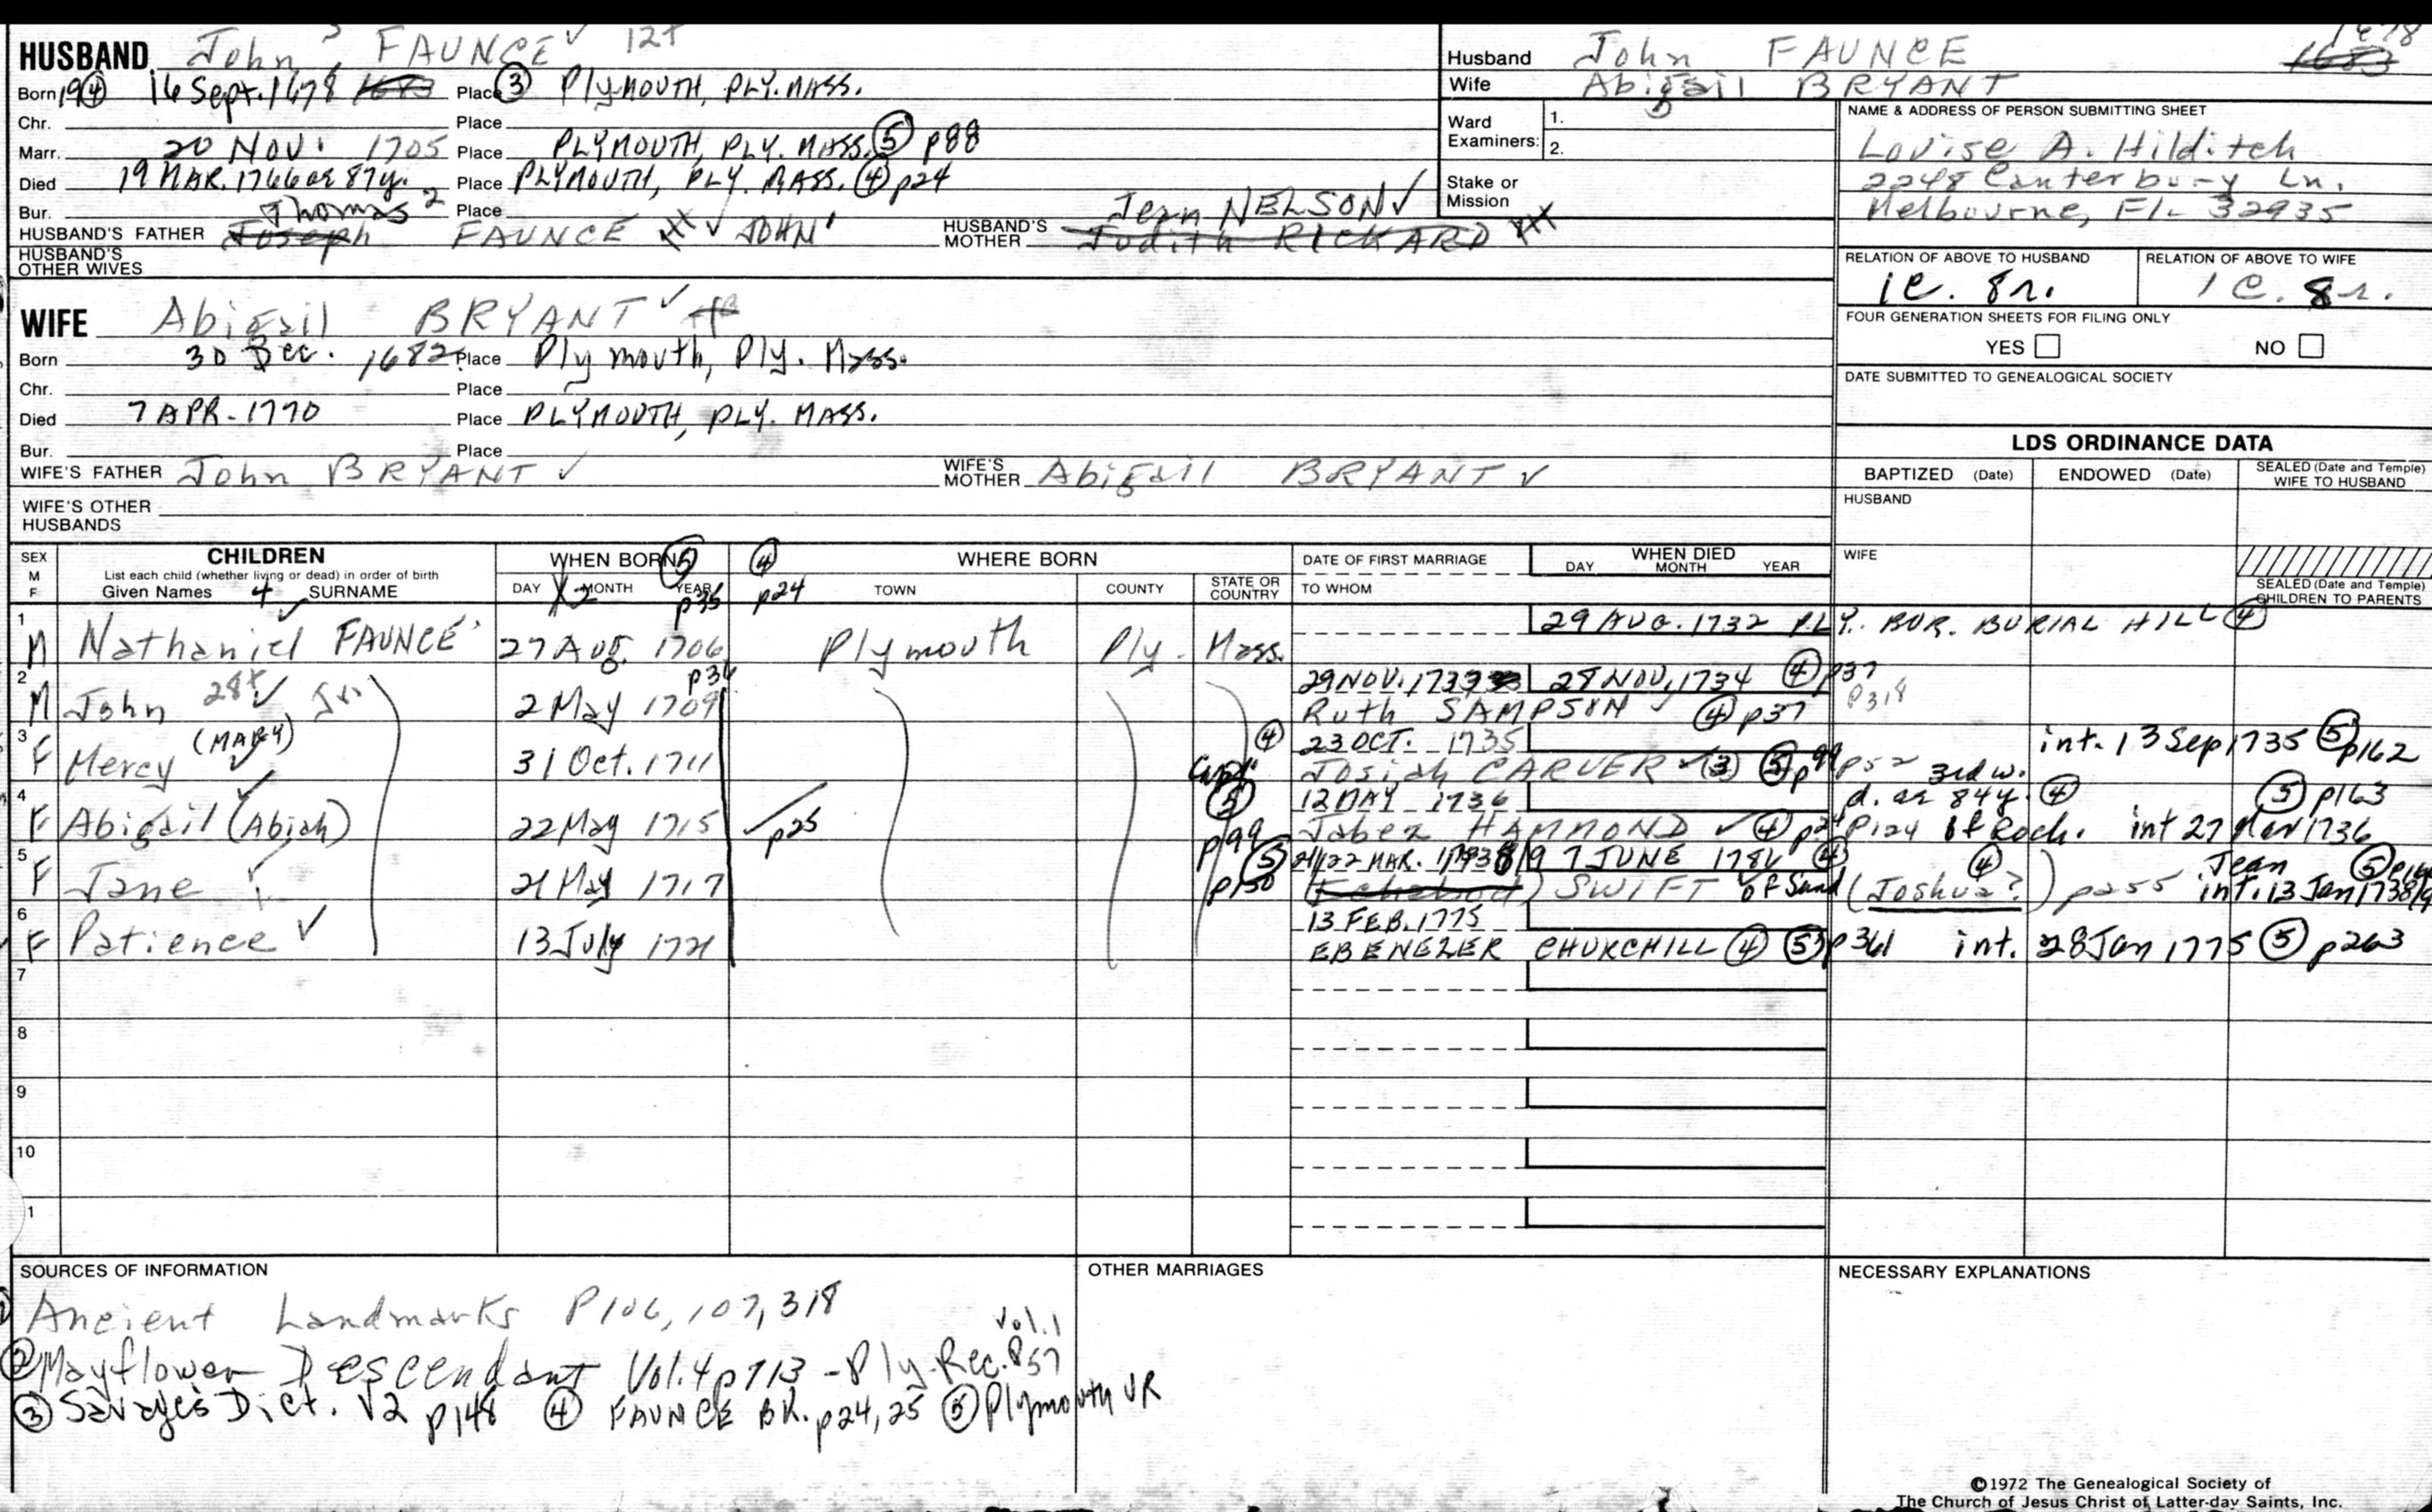 HUSBAND John 3 FAUNCE 12+
Born 19 ④ 16 Sept. 1678 1683 Place ③ Plymouth, Ply. Mass.
Chr. Place
Marr. 20 Nov. 1705 Place Plymouth, Ply. Mass. ⑤ p88
Died 19 Mar. 1766 ae 87y. Place Plymouth, Ply. Mass. ④ p24
Bur. Place
HUSBAND'S FATHER Joseph Thomas 2 FAUNCE XX JOHN 1 HUSBAND'S MOTHER Judith RICKARD XX Jean NELSON
HUSBAND'S OTHER WIVES
Husband John FAUNCE 1678 1683
Wife Abigail BRYANT
Ward Examiners: 1. 2.
Stake or Mission
NAME & ADDRESS OF PERSON SUBMITTING SHEET
Louise A. Hilditch
2248 Canterbury Ln.
Melbourne, Fl. 32935
RELATION OF ABOVE TO HUSBAND RELATION OF ABOVE TO WIFE
1c. 8r. 1c. 8r.
FOUR GENERATION SHEETS FOR FILING ONLY
YES NO
DATE SUBMITTED TO GENEALOGICAL SOCIETY
WIFE Abigail BRYANT
Born 30 Dec. 1682 Place Plymouth, Ply. Mass.
Chr. Place
Died 7 Apr. 1770 Place Plymouth, Ply. Mass.
Bur. Place
WIFE'S FATHER John BRYANT WIFE'S MOTHER Abigail BRYANT
WIFE'S OTHER HUSBANDS
LDS ORDINANCE DATA
BAPTIZED (Date) ENDOWED (Date) SEALED (Date and Temple) WIFE TO HUSBAND
HUSBAND
WIFE
SEALED (Date and Temple) CHILDREN TO PARENTS
SEX M F CHILDREN List each child (whether living or dead) in order of birth Given Names 4 SURNAME
WHEN BORN ⑤ DAY MONTH YEAR p35
④ p24 WHERE BORN TOWN COUNTY STATE OR COUNTRY
DATE OF FIRST MARRIAGE TO WHOM
WHEN DIED DAY MONTH YEAR
1 M Nathaniel FAUNCE 27 Aug. 1706 Plymouth Ply. Mass. 29 Aug. 1732 Ply. Bur. Burial Hill ④
2 M John 28+ Jr. 2 May 1709 p36 29 Nov. 1733 28 Nov. 1734 ④ p37
Ruth SAMPSON ④ p37 p318
3 F Mercy (Mary) 31 Oct. 1711 ④ 23 Oct. 1735 int. 13 Sep 1735 ⑤ p162
Josiah CARVER ③ ⑤ p99 p52 3rd w.
4 F Abigail (Abiah) 22 May 1715 p25 ⑤ p99 12 May 1736 d. ae 84y. ④ ⑤ p163
Jabez HAMMOND ④ p24 p124 of Roch. int 27 Mar 1736
5 F Jane 21 May 1717 ⑤ p150 21/22 Mar. 1738/9 7 June 1786 ④ ④ Jean ⑤
(Ichabod) SWIFT of Sand (Joshua?) p255 int. 13 Jan 1738/9
6 F Patience 13 July 1721 13 Feb. 1775
EBENEZER CHURCHILL ④ ⑤ p361 int. 28 Jan 1775 ⑤ p263
7
8
9
10
1
SOURCES OF INFORMATION
Ancient Landmarks P106, 107, 318
② Mayflower Descendant Vol. 4 p113 - Ply. Rec. Vol. 1 p57
③ Savage's Dict. V2 p148 ④ FAUNCE BK. p24, 25 ⑤ Plymouth VR
OTHER MARRIAGES
NECESSARY EXPLANATIONS
©1972 The Genealogical Society of
The Church of Jesus Christ of Latter-day Saints, Inc.